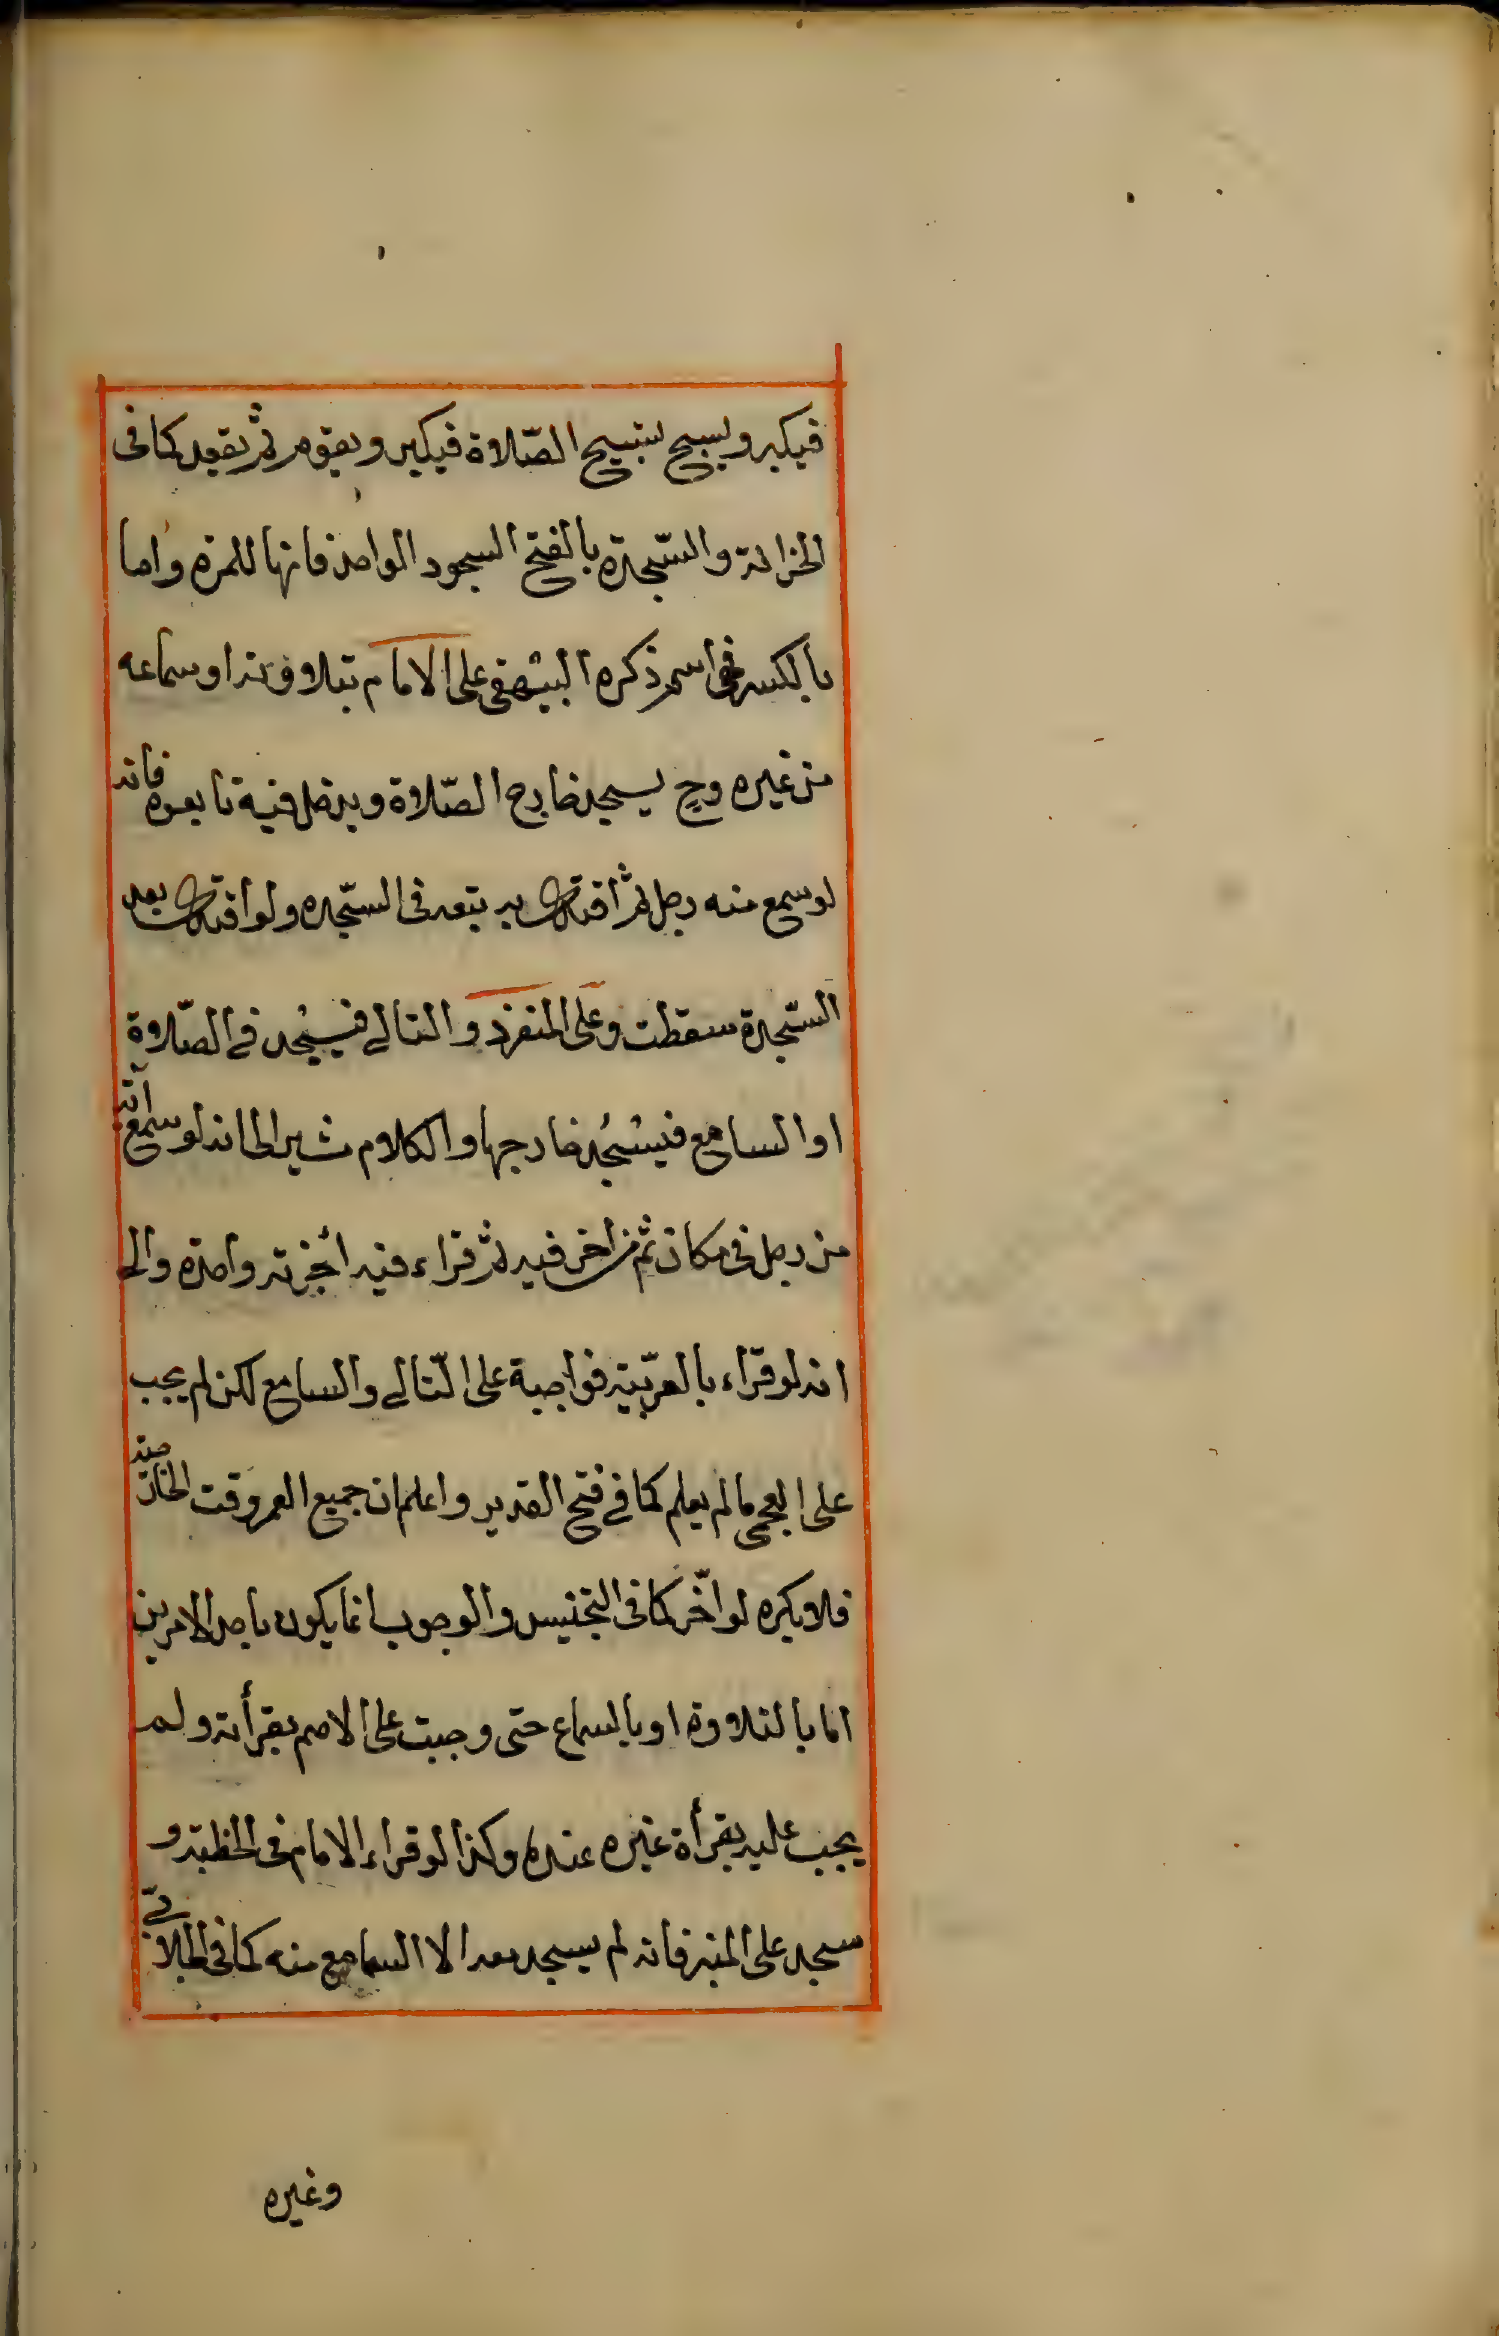 فيكبر ويسبح بتسبيح الصّلاوة فيكبر ويقوم ثم يقعد كما فى
الخزانة والسّجدة بالفتح السجود الواحد فانها للمرة واما
بالكسر فهى اسم ذكره البيهقى على الامام بتلاوته او سماعه
من غيره وح يسجد خارج الصّلاوة ويدخل فيه تابعوه فانه
لو سمع منه رجل ثم اقتدى به يتبعه فى السّجده ولو اقتدى بعد
السّجدة سقطت وعلى المنفرد والتالے فيسْجُد فے الصّلاوة
او السامع فيسْجُد خارجها والكلام مشير الى انه لو سمع آية
من رجل فى مكان ثم من اخر فيه ثم قراء فيه اجزته واحدة والى
انه لو قراء بالعربّية فواجبة على التّالے والسامع لكن لم يجب
على العجمى ما لم يعلم كما فے فتح القدير واعلم ان جميع العمر وقت الخارجية
فلا يكره لو اخّر كما فى التجنيس والوجوب انما يكون باحد الامرين
اما بالتلاوة او بالسماع حتى وجبت على الاصم بقرأته ولم
يجب عليه بقرأة غيره عنده وكذا لو قراء الامام فى الخطبة و
سجد على المنبر فانه لم يسجد معه الا السامع منه كما فى الجلابّے
وغيره